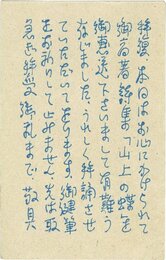 拝復 本日はお心にかけられて
御高著詩集の「山上の蝶」を
御恵送下さいまして有難う
存じました、うれしく拝誦させ
ていただいてをります。御健筆
をお祈りして止みません。先は取
急ぎ拝受御礼まで、敬具